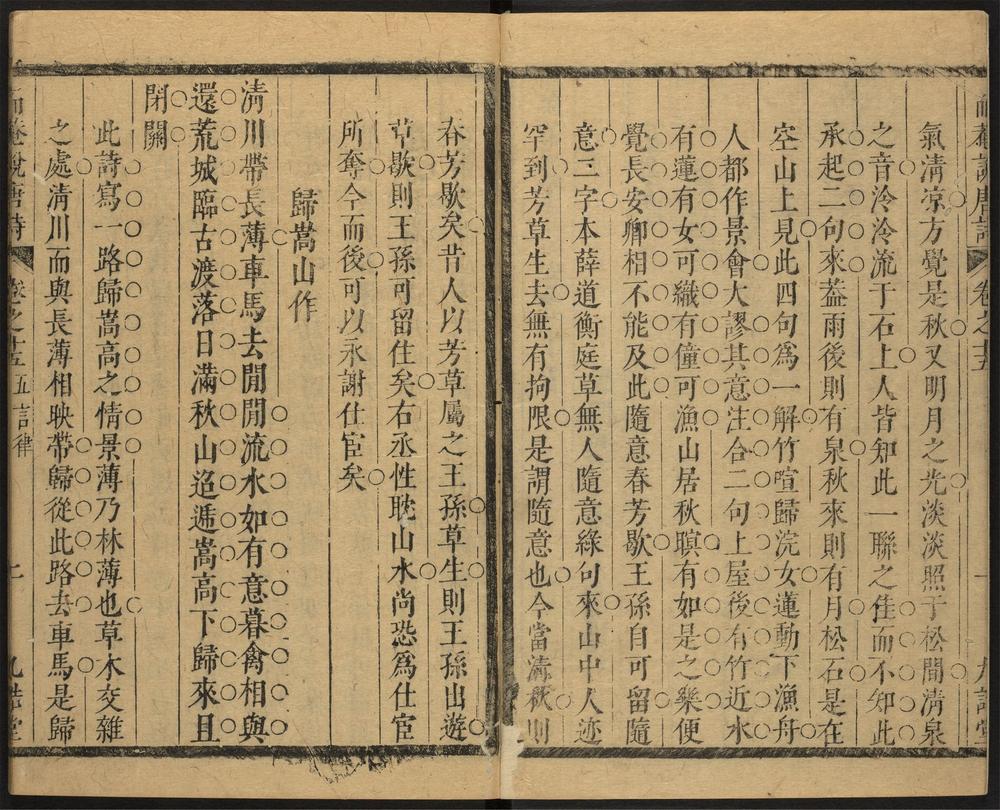 而菴說唐詩 卷之十五 九誥堂
氣清凉方覺是秋又明月之光淡淡照于松間清泉
之音泠泠流于石上人皆知此一聯之佳而不知此
承起二句來葢雨後則有泉秋來則有月松石是在
空山上見此四句爲一解竹喧歸浣女蓮動下漁舟
人都作景會大謬其意注合二句上屋後有竹近水
有蓮有女可織有僮可漁山居秋暝有如是之樂便
覺長安卿相不能及此隨意春芳歇王孫自可留隨
意三字本薛道衡庭草無人隨意綠句來山中人迹
罕到芳草生去無有拘限是謂隨意也今當淸秋則
春芳歇矣昔人以芳草屬之王孫草生則王孫出遊
草歇則王孫可留住矣右丞性耽山水尚恐爲仕宦
所奪今而後可以永謝仕宦矣
歸嵩山作
淸川帶長薄車馬去閒閒流水如有意暮禽相與
還荒城臨古渡落日滿秋山迢遞嵩高下歸來且
閉關
此詩寫一路歸嵩高之情景薄乃林薄也草木交雜
之處淸川而與長薄相映帶歸從此路去車馬是歸
而菴說唐詩 卷之十五 五言律 二 九誥堂